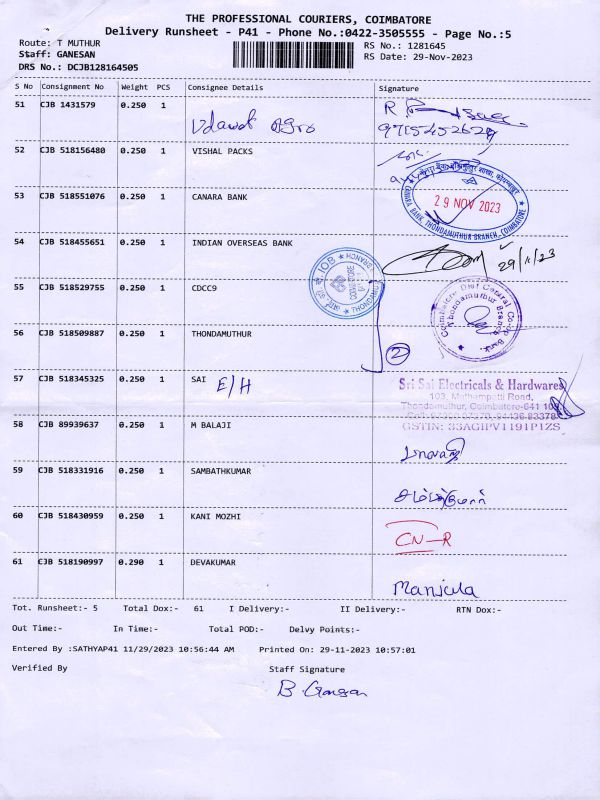 THE PROFESSIONAL COURIERS, COIMBATORE
Delivery Runsheet - P41 - Phone No.:0422-3505555 - Page No.:5
Route: T MUTHUR
RS No.: 1281645
Staff: GANESAN
RS Date: 29-Nov-2023
DRS No.: DCJB128164505
S No Consignment No Weight PCS Consignee Details Signature
51 CJB 1431579 0.250 1
R
52 CJB 518156480 0.250 1 VISHAL PACKS
53 CJB 518551076 0.250 1 CANARA BANK
29 NOV 2023
CANARA BANK, THONDAMUTHUR BRANCH, COIMBATORE
54 CJB 518455651 0.250 1 INDIAN OVERSEAS BANK
29/11/23
55 CJB 518529755 0.250 1 CDCC9
Coimbatore Dist Central Co-op Bank.
Thondamuthur Branch
56 CJB 518509887 0.250 1 THONDAMUTHUR
2
57 CJB 518345325 0.250 1 SAI E/H
Sri Sai Electricals & Hardwares
103, Mathampatti Road,
Thondamuthur, Coimbatore-641 109
GSTIN: 33AGIPV1191P1ZS
58 CJB 89939637 0.250 1 M BALAJI
59 CJB 518331916 0.250 1 SAMBATHKUMAR
60 CJB 518430959 0.250 1 KANI MOZHI
CN-R
61 CJB 518190997 0.290 1 DEVAKUMAR
Manjula
Tot. Runsheet:- 5 Total Dox:- 61 I Delivery:- II Delivery:- RTN Dox:-
Out Time:- In Time:- Total POD:- Delvy Points:-
Entered By :SATHYAP41 11/29/2023 10:56:44 AM Printed On: 29-11-2023 10:57:01
Verified By Staff Signature
B. Ganesan